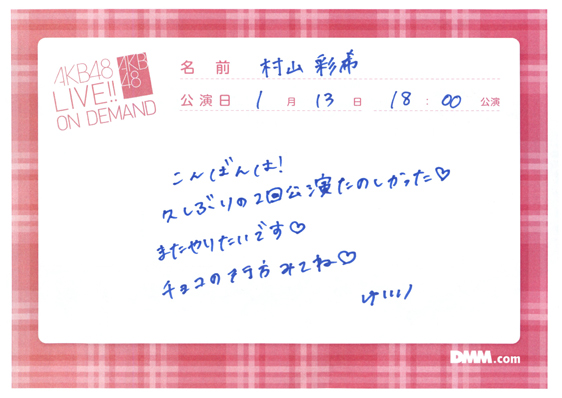 AKB48
LIVE!!
ON DEMAND
AKB
48
名前 村山彩希
公演日 1月13日 18:00公演
こんばんは!
久しぶりの2回公演たのしかった♡
またやりたいです♡
チョコの行方みてね♡
DMM.com